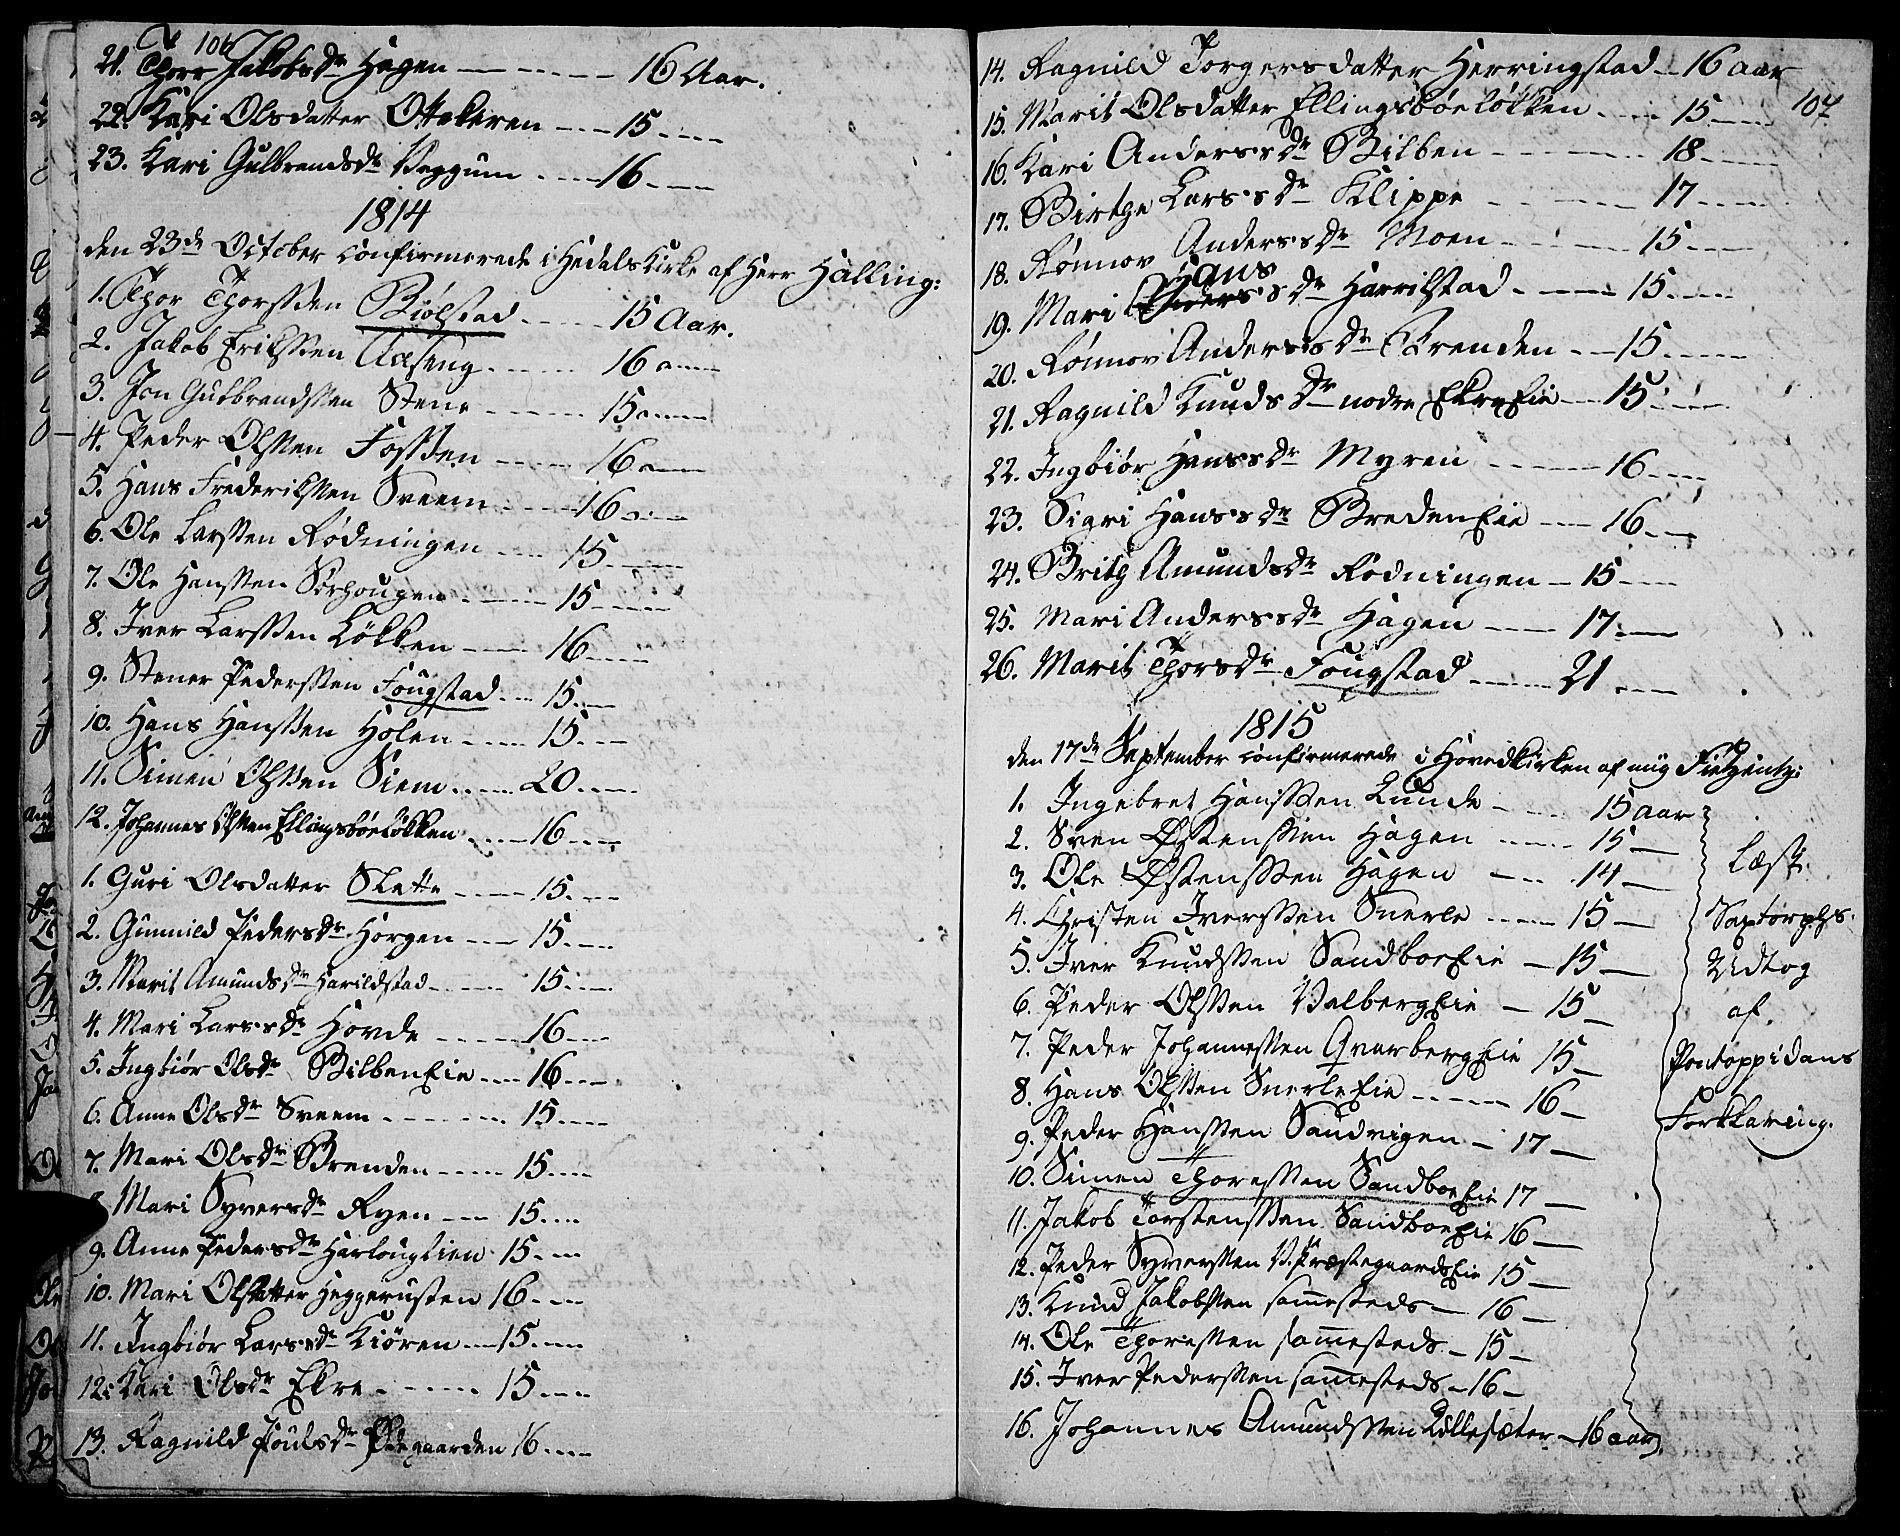 106
21. Thore Jakobsdr Hagen - - - - - 16 Aar.
22. Kari Olsdatter Ottekeren - - - 15 - - -
23. Kari Gulbrandsdr Veggum - - - 16 - - -
1814
den 23de October confirmerede i Hedals Kirke af Herr Halling:
1. Thor Thorssen Biölstad - - - - 15 Aar.
2. Jakob Erikssen Aaseng - - - - 16 - - -
3. Jon Gulbrandssen Stene - - - - 15 - - -
4. Peder Olssen Fossen - - - 16 - - -
5. Hans Frederikssen Sveem - - - 16 - - -
6. Ole Larssen Rödningen - - - 15 - - -
7. Ole Hanssen Sörhougen - - - 15 - - -
8. Iver Larssen Lökken - - - 16 - - -
9. Stener Pederssen Fougstad - - - 15 - - -
10. Hans Hanssen Holen - - - 15 - - -
11. Simen Olssen Siem - - - 20 - - -
12. Johannes Olssen Ellingsböelökken - - - 16 - - -
1. Guri Olsdatter Slette - - - 15 - - -
2. Gunnild Pedersdr Horgen - - - 15 - - -
3. Marit Amundsdr Harildstad - - - 15 - - -
4. Mari Larssdr Hovde - - - 16 - - -
5. Ingbiör Olsdr BilbenEie - - - 16 - - -
6. Anne Olsdr Sveem - - - - 15 - - -
7. Mari Olsdr Brenden - - - 15 - - -
Mari Syversdr Ryen - - - 15 - - -
9. Anne Pedersdr Harlouglien - 15 - - -
10. Mari Olsdatter Heggerusten 16 - - -
11. Ingbiör Larssdr Kiören - - - 15 - - -
12. Kari Olsdr Ekre - - - - 15 - - -
13. Ragnild Poulsdr Ödegaarden 16 - - -
107
14. Ragnild Torgersdatter Herringstad - 16 aar
15. Marit Olsdatter Ellingsböelökken - - - 15 - - -
16. Kari Anderssdr Bilben - - - - 18 - - -
17. Birthe Larssdr Klippe - - - - 17 - - -
18. Rönnov Anderssdr Moen - - - - 15 - - -
19. Mari Hans Anderssdr Harrilstad - - - 15 - - -
20. Rönnov Anderssdr Brenden - - - 15 - - -
21. Ragnild Knudsdr nodre EkreEie - - - 15 - - -
22. Ingbiör Hanssdr Myren - - - - 16 - - -
23. Sigri Hanssdr BredenEie - - - 16 - - -
24. Brith Amundsdr Rödningen - 15 - - -
25. Mari Anderssdr Hagen - - - 17 - - -
26. Marit Thorsdr Fougstad - - - 21 - - -
1815
den 17de September confirmerede i Hovedkirken af mig Fietzentz:
1. Ingebret Hanssen Lunde - - - 15 aar
2. Sven Östenssen Hagen - - - 15 -
3. Ole Östenssen Hagen - - - 14 -
4. Christen Iverssen Snerle - - - 15 -
5. Iver Knudssen SandboeEie - 15 -
6. Peder Olssen ValbergEie - 15 -
7. Peder Johannessen QvarbergEie 15 -
8. Hans Olssen SnerleEie - - - 16 -
9. Peder Hanssen Sandvigen - 17 -
10. Simen Thoressen SandboeEie 17 -
11. Jakob Torstenssen SandboeEie 16 -
12. Peder Syverssen V. PræstegaardsEie 15 -
13. Knud Jakobssen sammesteds - 16 -
14. Ole Thoressen sammesteds - 15 -
15. Iver Pederssen sammesteds - 16 -
16. Johannes Amundssen Lillesæter - 16 aar
læst
Saxtorphs
Udtog
af
Pontoppidans
Forklaring.